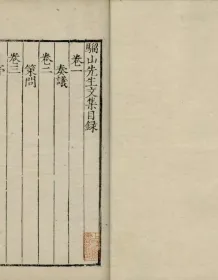 騮山先生文集目錄
卷一
奏議
卷二
策問
卷三